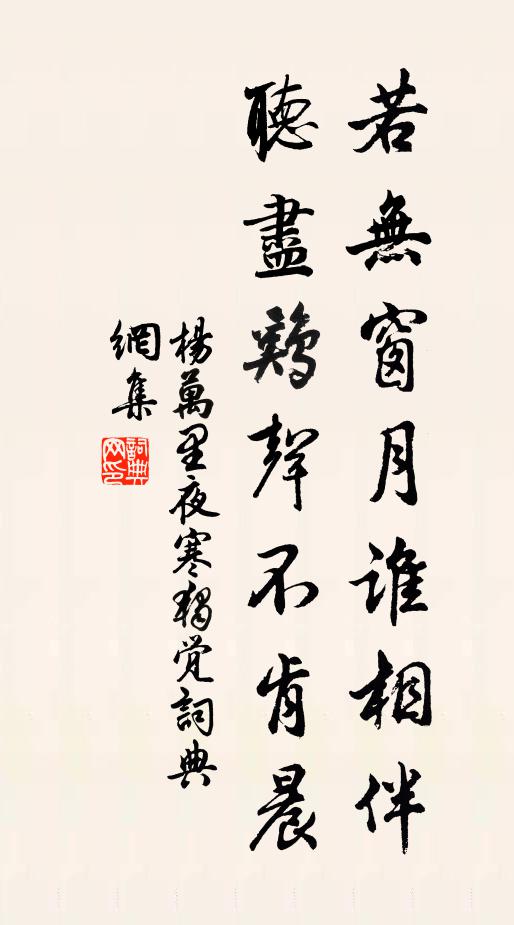 若無窗月誰相伴
聽盡鷄聲不肯晨
楊萬里夜寒獨覺詞典
網集
詞典
网印